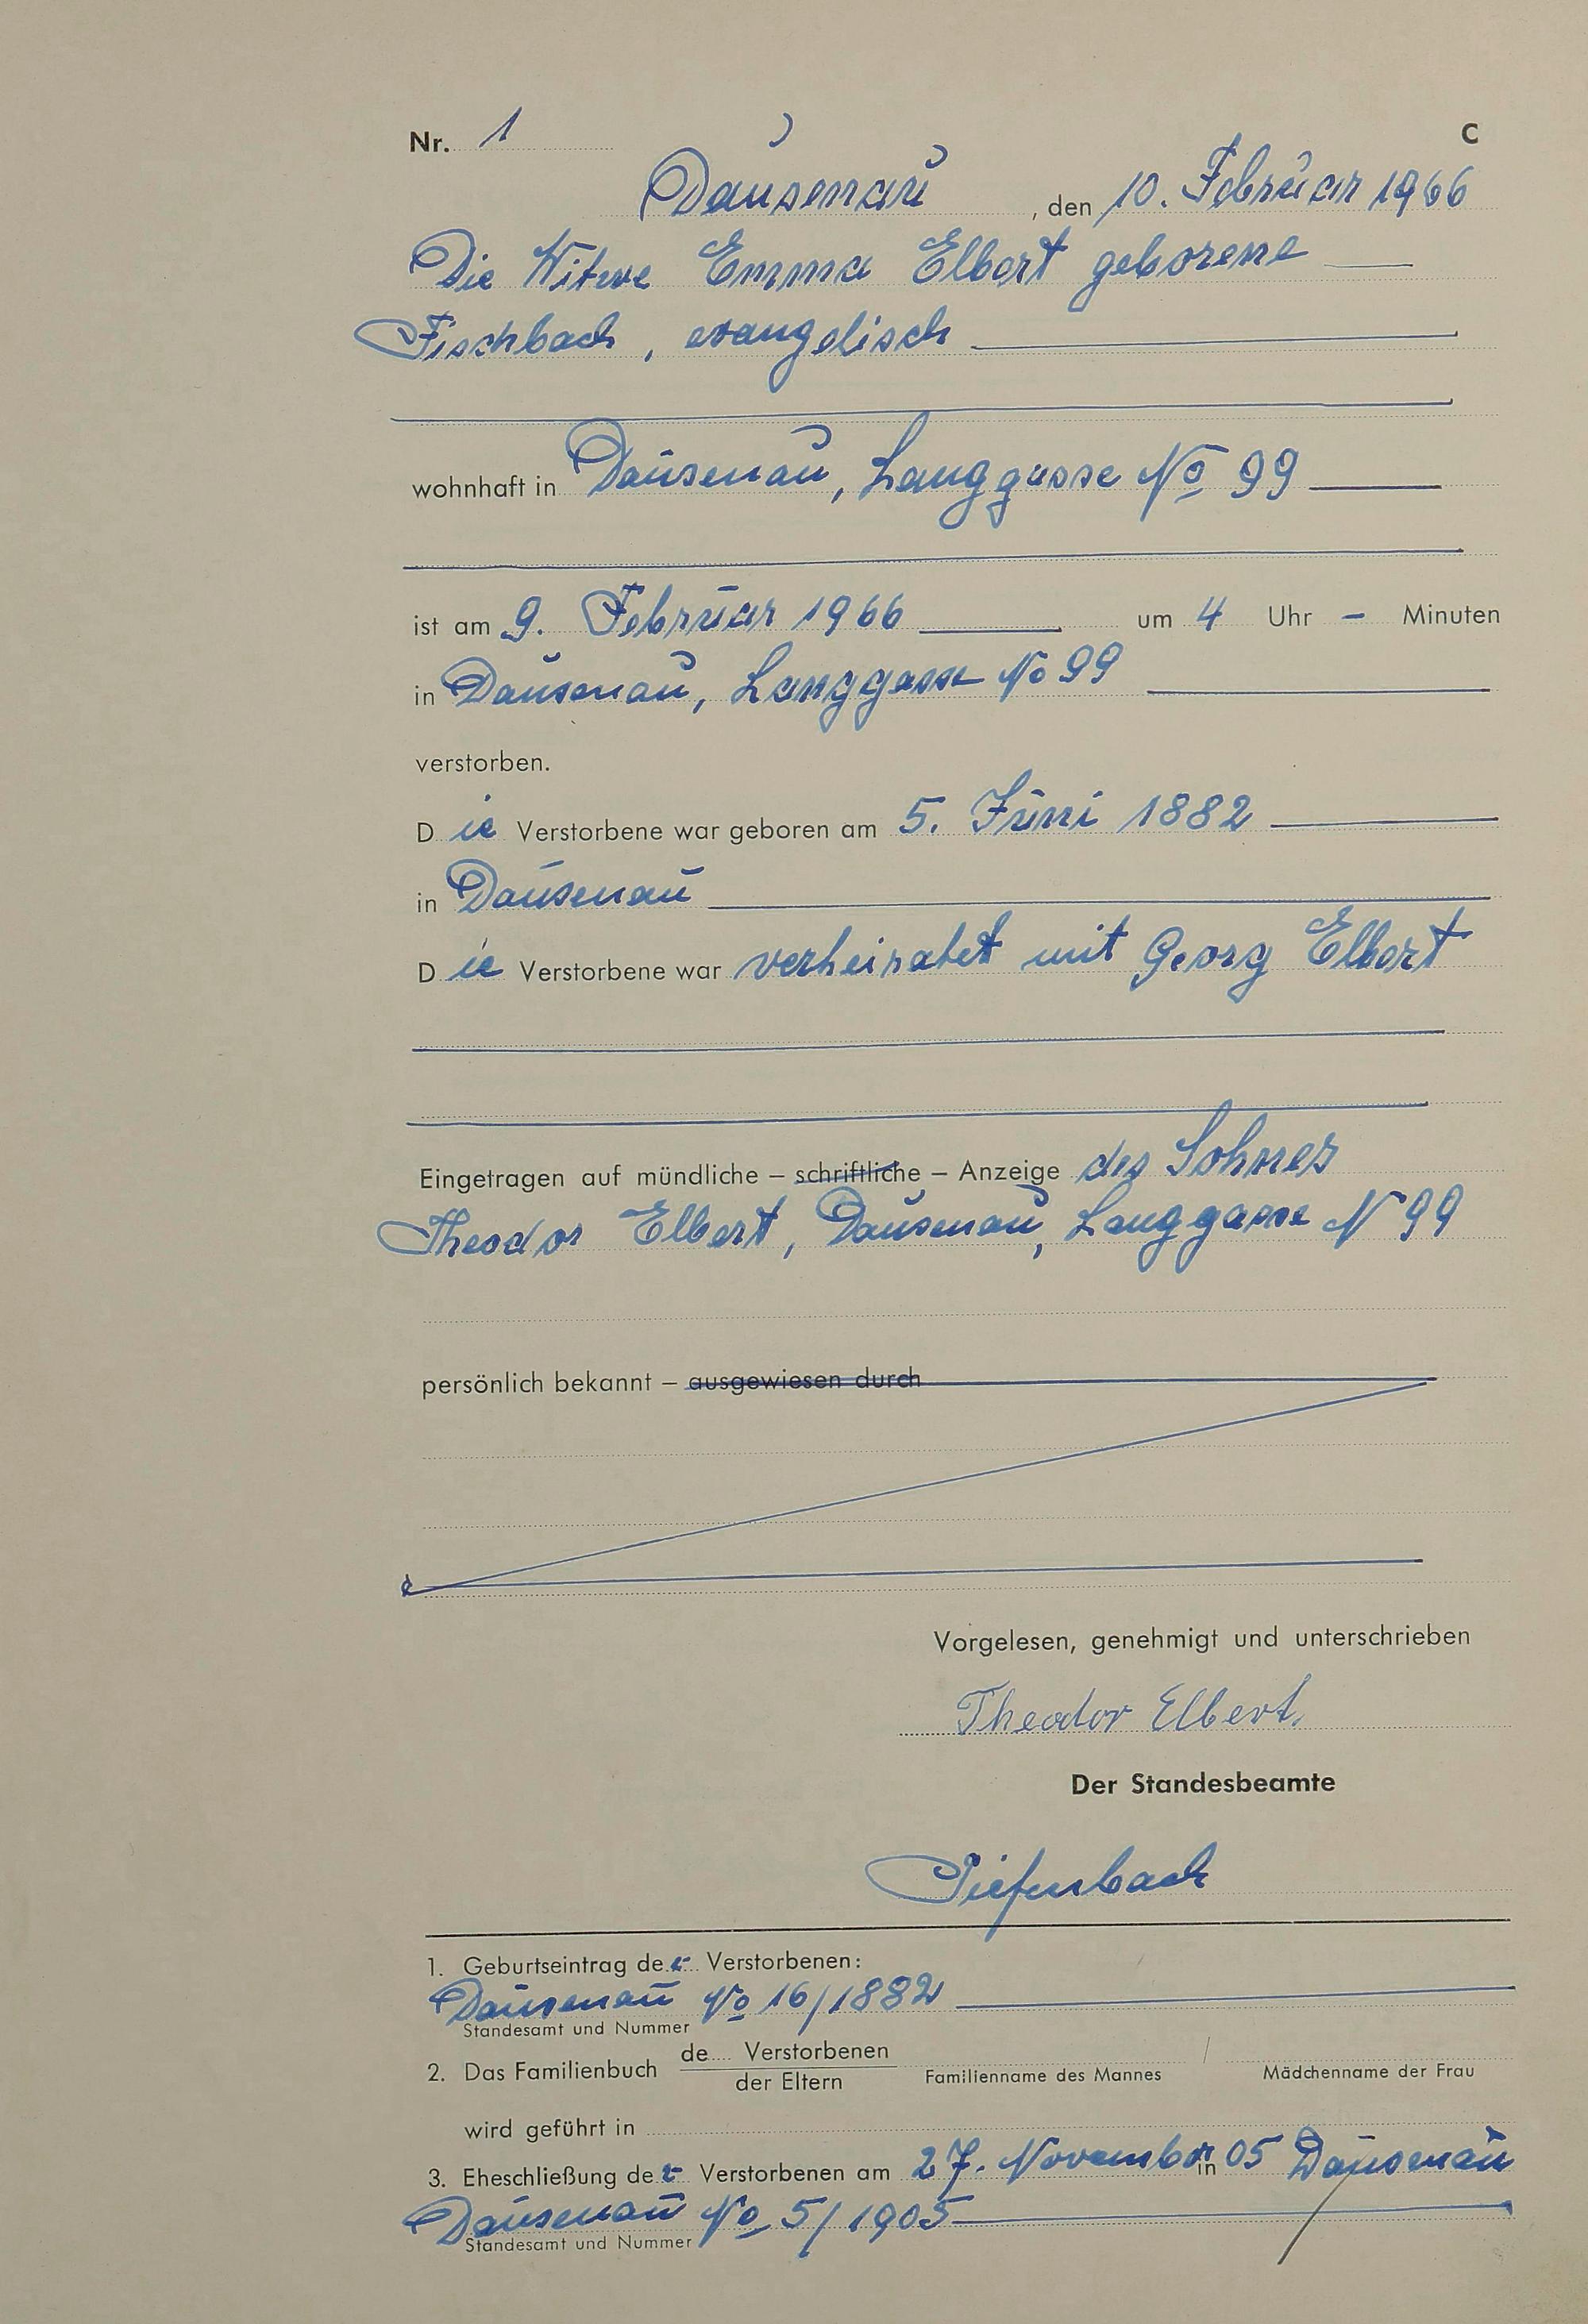 Nr. 1 C
Dausenau, den 10. Februar 1966
Die Witwe Emma Elbert geborene
Fischbach, evangelisch
wohnhaft in Dausenau, Langgasse No 99
ist am 9. Februar 1966 um 4 Uhr – Minuten
in Dausenau, Langgasse No 99
verstorben.
Die Verstorbene war geboren am 5. Juni 1882
in Dausenau
Die Verstorbene war verheiratet mit Georg Elbert
Eingetragen auf mündliche – schriftliche – Anzeige des Sohnes
Theodor Elbert, Dausenau, Langgasse N 99
persönlich bekannt – ausgewiesen durch
Vorgelesen, genehmigt und unterschrieben
Theodor Elbert.
Der Standesbeamte
Tiefenbach
1. Geburtseintrag der Verstorbenen:
Dausenau No 16/1882
Standesamt und Nummer
2. Das Familienbuch de.... Verstorbenen
der Eltern Familienname des Mannes / Mädchenname der Frau
wird geführt in
3. Eheschließung der Verstorbenen am 27. November in 05 Dausenau
Dausenau No 5/1905
Standesamt und Nummer